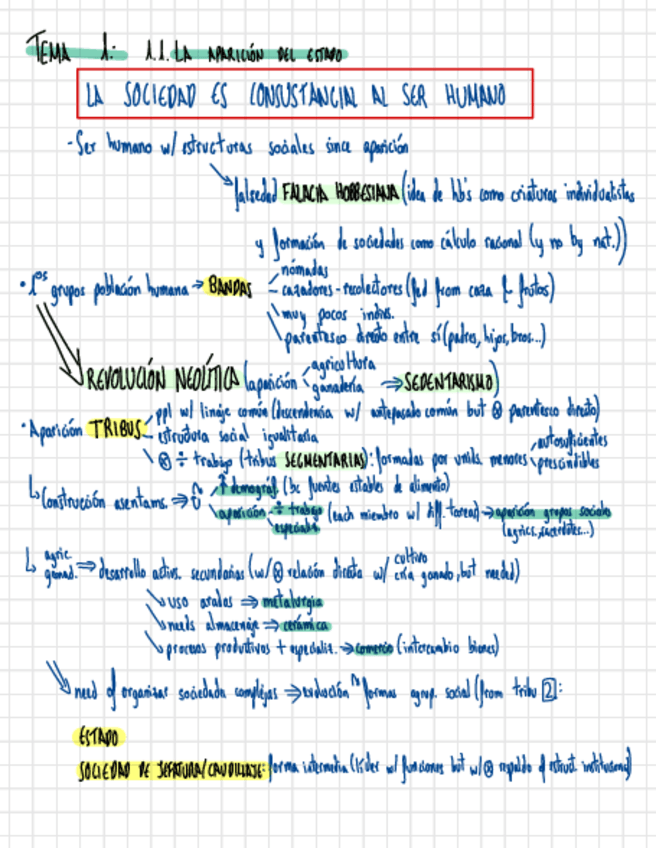 TEMA 1: 1.1. LA APARICIÓN DEL ESTADO
LA SOCIEDAD ES CONSUSTANCIAL AL SER HUMANO
- Ser humano w/ estructuras sociales since aparición
falsedad FALACIA HOBBESIANA (idea de hb's como criaturas individualistas
y formación de sociedades como cálculo racional (y no by nat.))
• 1ᵒˢ grupos población humana → BANDAS
nómadas
cazadores-recolectores (fed from caza & frutos)
muy pocos indivs.
parentesco directo entre sí (padres, hijos, bros...)
REVOLUCIÓN NEOLÍTICA (aparición agricultura
ganadería ⇒ SEDENTARISMO)
• Aparición TRIBUS
ppl w/ linaje común (descendencia w/ antepasado común but ⊗ parentesco directo)
estructura social igualitaria
⊗ ÷ trabajo (tribus SEGMENTARIAS): formadas por unids. menores
autosuficientes
prescindibles
↳ Construcción asentams. ⇒
↑ demográf. (bc fuentes estables de alimento)
aparición ÷ trabajo
especialis. (each miembro w/ diff. tarea) → aparición grupos sociales
(agrics., sacerdotes...)
↳ agric.
ganad. ⇒ desarrollo activs. secundarias (w/ ⊗ relación directa w/ cultivo
cría ganado, but needed)
uso arados ⇒ metalurgia
needs almacenaje ⇒ cerámica
procesos produtivos + especialis. → comercio (intercambio bienes)
need of organizar sociedads complejas ⇒ evolución formas agrup. social (from tribu 2):
ESTADO
SOCIEDAD DE JEFATURA/CAUDILLAJE: forma intermedia (líder w/ funciones but w/ ⊗ respaldo of estruct. institucional)